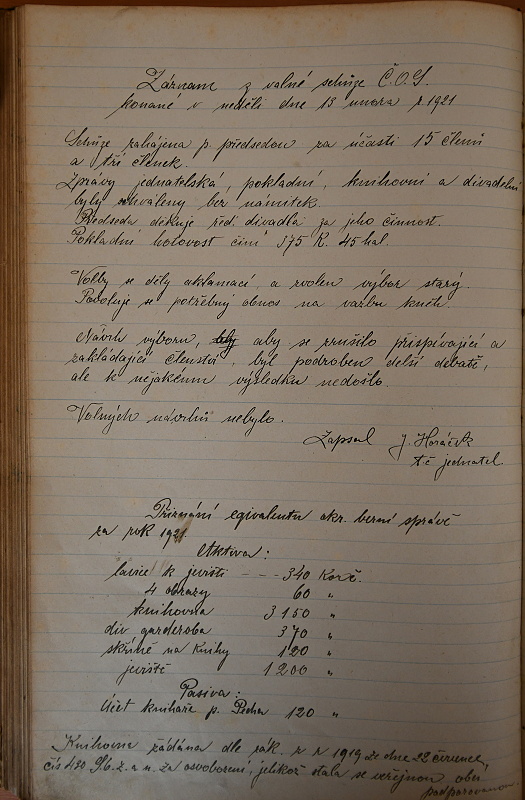 Záznam z valné schůze Č.O.S.
konané v neděli dne 13 února r. 1921
Schůze zahájena p. předsedou za účasti 15 členů
a tří členek.
Zprávy jednatelská, pokladní, knihovní a divadelní
byly schváleny bez námitek.
Předseda děkuje řed. divadla za jeho činnost.
Pokladní hotovost činí 375 K. 45 hal.
Volby se děly aklamací, a zvolen výbor starý.
Povoluje se potřebný obnos na vazbu knih.
Návrh výboru, aby se zrušilo přispívající a
zakládající členství, byl podroben delší debatě,
ale k nějakému výsledku nedošlo.
Volných návrhů nebylo.
Zapsal J. Horáček
t.č. jednatel
Přiznání eqivalentu okr. berní správě
za rok 1921.
Aktiva:
lavic k jevišti --- 340 Korč.
4 obrazy 60 "
knihovna 3150 "
div garderoba 370 "
skříně na knihy 120 "
jeviště 1200 "
Pasiva:
Účet knihaře p. Pecha 120 "
Knihovna žádána dle zák. z r 1919 ze dne 22 července,
čís 430 Sb. z. a n. za osvobození, jelikož stala se veřejnou obcí
podporovanou